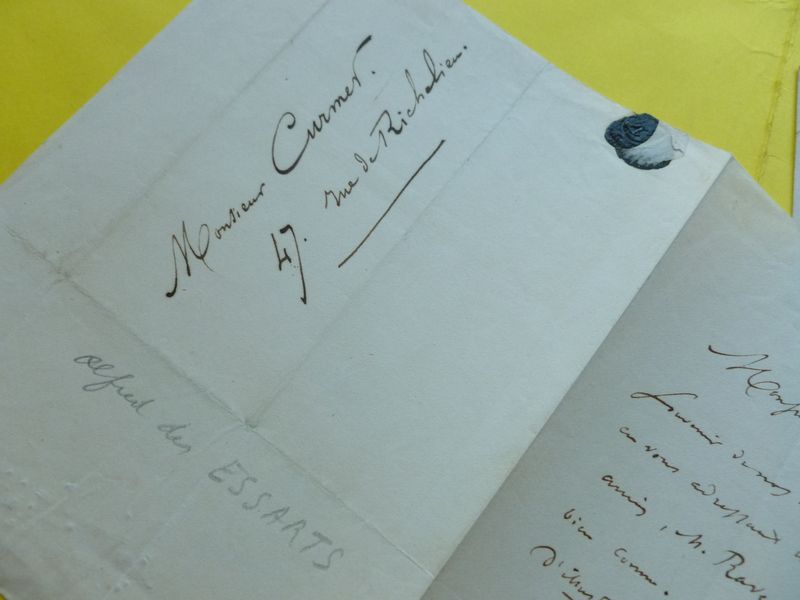 Monsieur Curmer.
47. rue de Richelieu.
Alfred des ESSARTS
en vous adressant
amis, M.
bien connu.